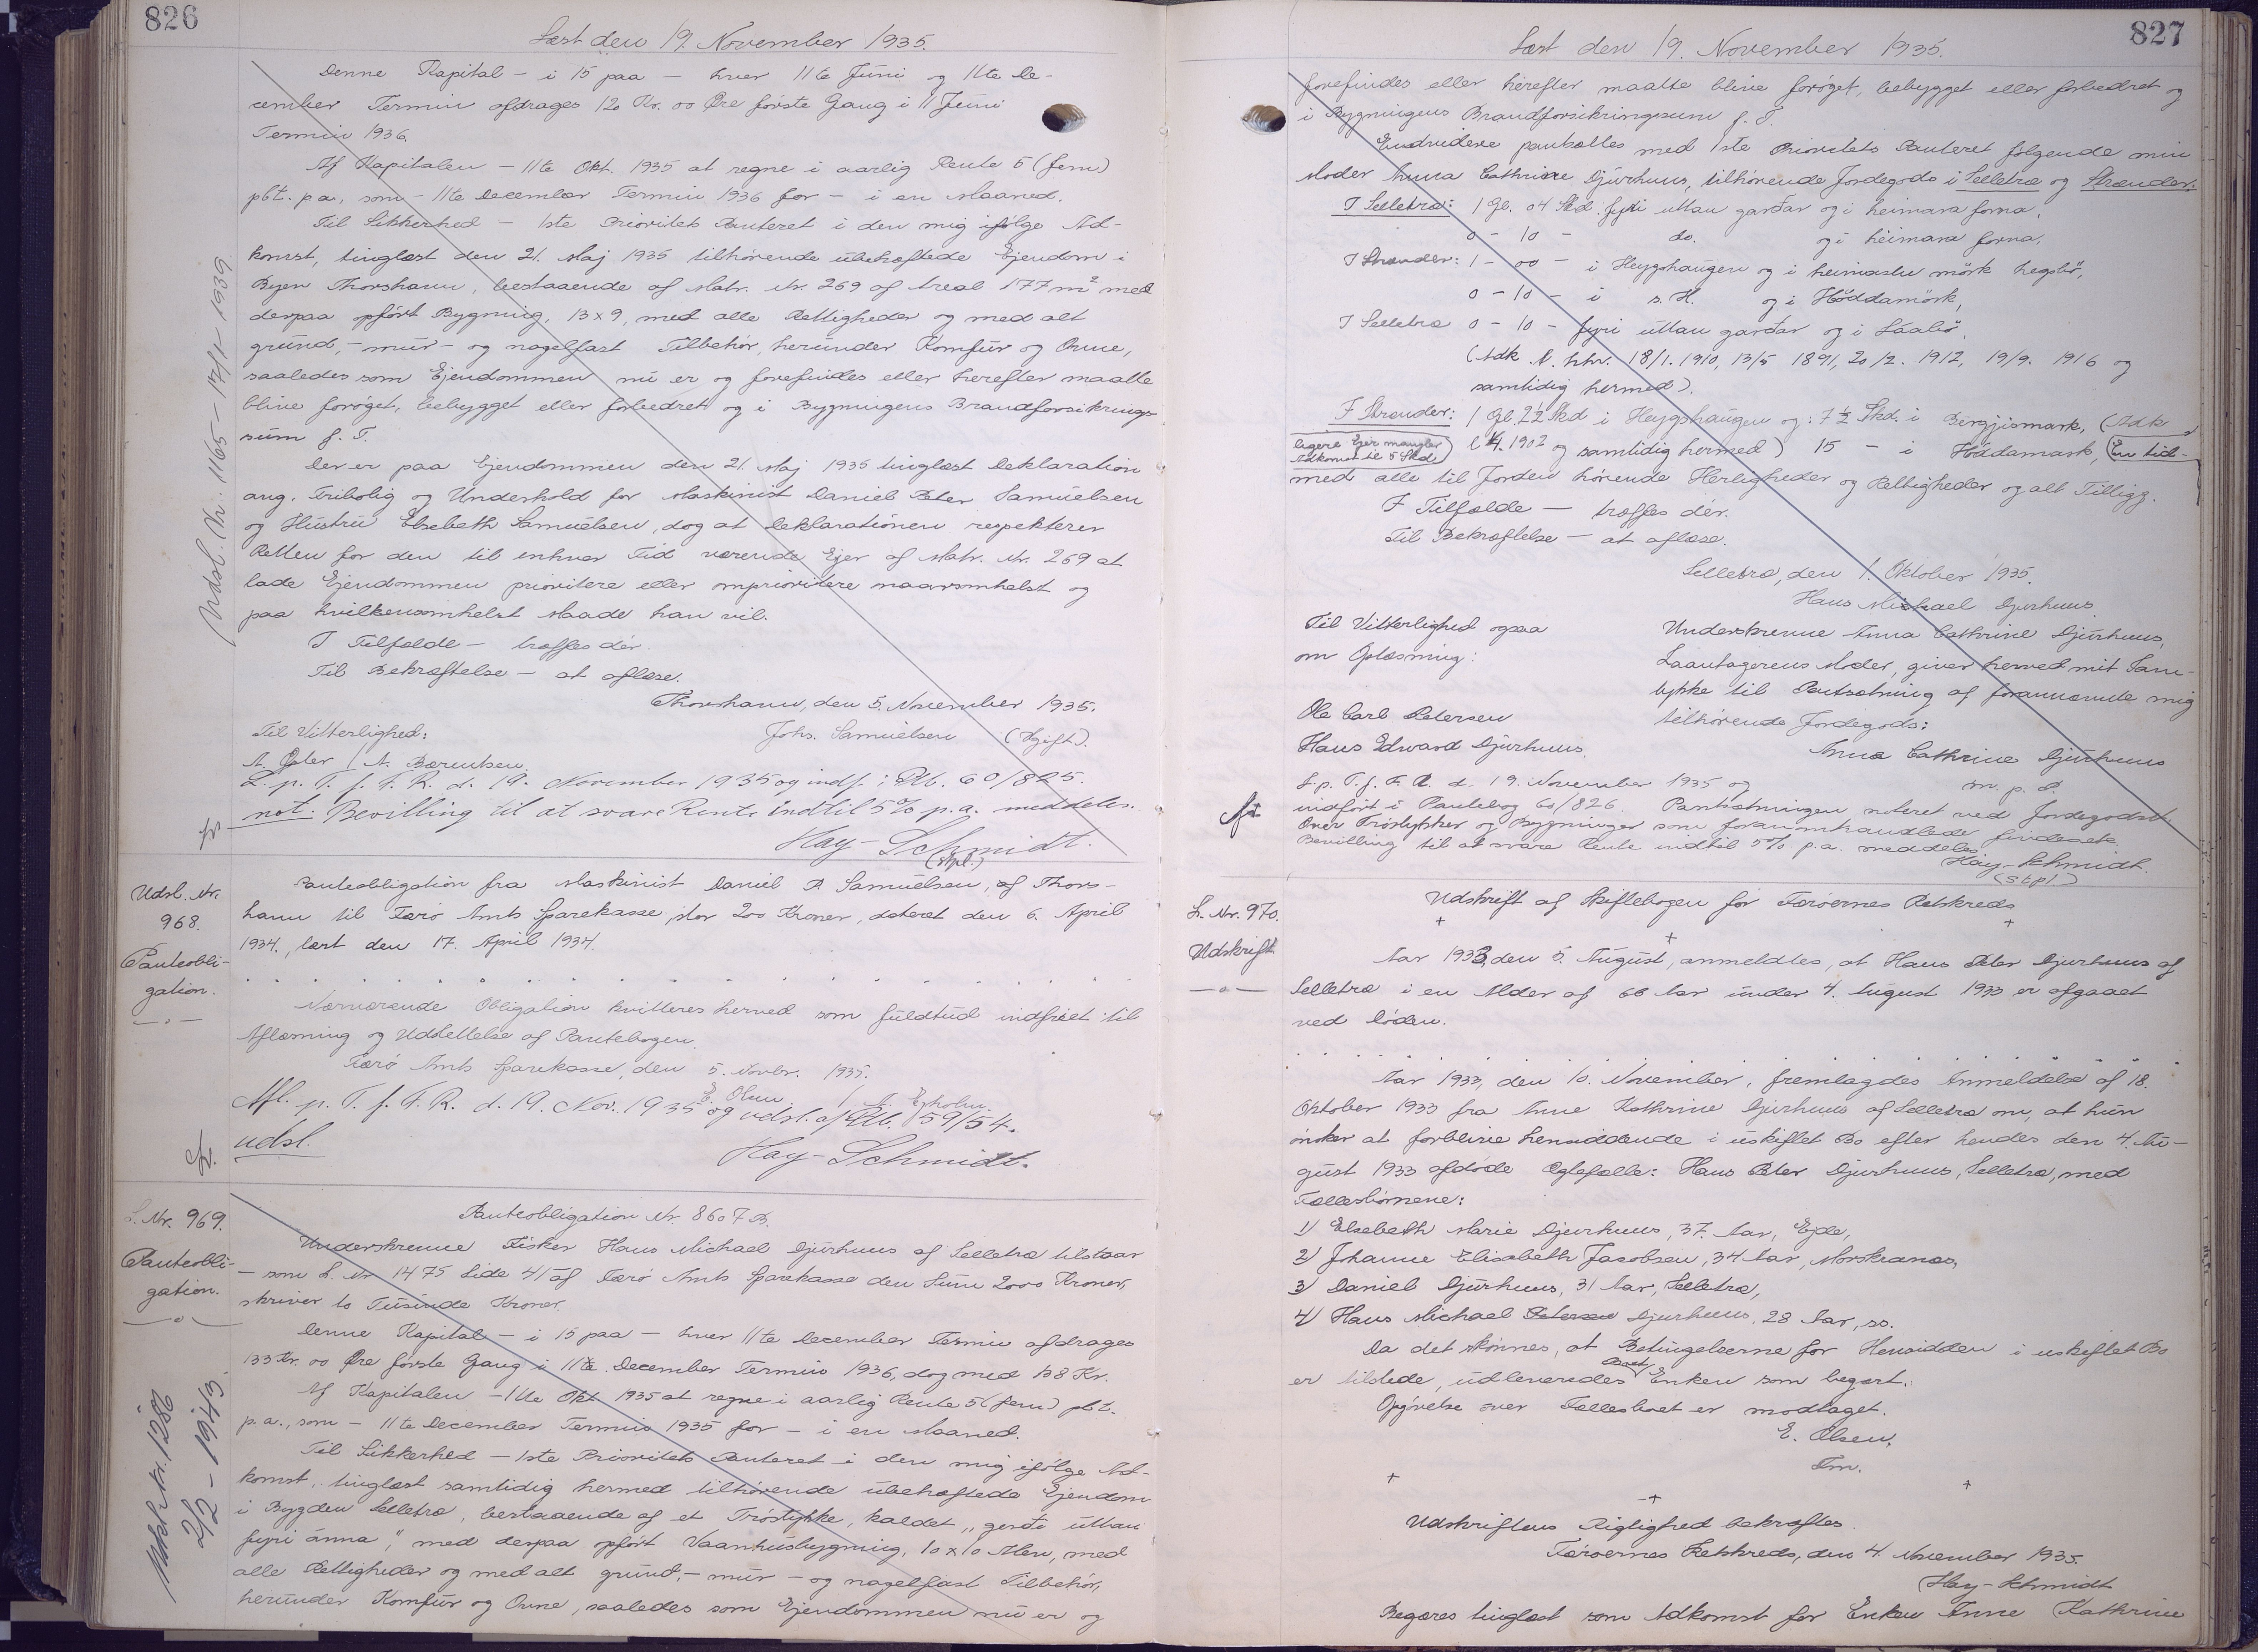 826
Læst den 19. November 1935.
Denne Kapital – i 15 paa – hver 11te Juni og 11te De-
cember Termin afdrages 120 Kr. 00 Øre første Gang i 11 Juni
Termin 1936.
Af Kapitalen – 11te Okt. 1935 at regne i aarlig Rente 5 (fem)
pCt. p.a., som – 11te December Termin 1936 for – i en Maaned.
Til Sikkerhed – 1ste Prioritets Panteret i den mig ifølge Ad-
komst, tinglæst den 21. Maj 1935 tilhørende ubehæftede Ejendom i
Byen Thorshavn, bestaaende af Matr. Nr. 269 af Areal 177 m² med
derpaa opført Bygning, 13 x 9, med alle Rettigheder og med alt
grund,- mur- og nagelfast Tilbehør, herunder Komfur og Ovne,
saaledes som Ejendommen nu er og forefindes eller herefter maatte
blive forøget, bebygget eller forbedret og i Bygningens Brandforsikrings-
sum f. T.
Der er paa Ejendommen den 21. Maj 1935 tinglæst Deklaration
ang. Fribolig og Underhold for Maskinist Daniel Peter Samuelsen
og Hustru Elsebeth Samuelsen, dog at Deklarationen respekterer
Retten for den til enhver Tid værende Ejer af Matr. Nr. 269 at
lade Ejendommen prioritere eller omprioritere naarsomhelst og
paa hvilkensomhelst Maade han vil.
I Tilfælde – træffes dér.
Til Bekræftelse – at aflæse.
Thorshavn, den 5. November 1935.
Til Vitterlighed:
Johs. Samuelsen (Ugift).
A. / N. Bærentsen.
L. p. T. f. F. R. d. 19. November 1935 og indf. i Pb. 60/825.
not: Bevilling til at svare Rente indtil 5% p.a. meddeles.
Hay-Schmidt.
(stpl.)
Udsl. Nr. 1165 – 17/1 1939
Udsl. Nr.
968.
Panteobli-
gation.
Panteobligation fra Maskinist Daniel P. Samuelsen, af Thors-
havn til Færø Amts Sparekasse, stor 200 Kroner, dateret den 6. April
1934, læst den 17. April 1934.
Nærværende Obligation kvitteres herved som fuldtud indfriet til
Aflæsning og Udslettelse af Pantebogen.
Færø Amts Sparekasse, den 5. Novbr. 1935.
E. Olsen /
Afl. p. T. f. F. R. d. 19. Nov. 1935 og udsl. af Pb. 59/54.
udsl.
Hay-Schmidt.
L. Nr. 969.
Panteobli-
gation.
Panteobligation Nr. 8607 B.
Underskrevne Fisker Hans Michael Djurhuus af Selletræ tilstaar
– som L. Nr 1475 Side 41 af Færø Amts Sparekasse den Sum 2000 Kroner,
skriver to Tusinde Kroner.
Denne Kapital – i 15 paa – hver 11te December Termin afdrages
133 Kr. 00 Øre første Gang i 11te December Termin 1936, dog med 138 Kr.
Af Kapitalen – 11te Okt 1935 at regne i aarlig Rente 5 (fem) pCt.
p.a., som – 11te December Termin 1935 for – i en Maaned.
Til Sikkerhed – 1ste Prioritets Panteret i den mig ifølge Ad-
komst, tinglæst samtidig hermed tilhørende ubehæftede Ejendom
i Bygden Selletræ, bestaaende af et Trøstykke, kaldet „gerði uttan
fyri ánna", med derpaa opført Vaanhusbygning, 10 x 10 Alen, med
alle Rettigheder og med alt grund,- mur- og nagelfast Tilbehør,
herunder Komfur og Ovne, saaledes som Ejendommen nu er og
Nr. 1286
2/2 – 1943.
827
Læst den 19. November 1935.
forefindes eller herefter maatte blive forøget, bebygget eller forbedret og
i Bygningens Brandforsikringssum f. T.
Endvidere pantsættes med 1ste Prioritets Panteret følgende min
Moder Anna Cathrine Djurhuus, tilhørende Jordegods i Selletræ og Strænder:
I Selletræ: 1 Gl. 04 Skd. fyri uttan garðar og i heimara forna,
0 – 10 – do. og i heimara forna,
I Strænder: 1 – 00 – i Heygshaugen og i heimastu mörk
0 – 10 – i s. H. og i Höddamörk,
I Selletræ 0 – 10 – fyri uttan garðar og i
(Adk. l. hhv. 18/1. 1910, 13/5 1891, 20/2. 1912, 19/9. 1916 og
samtidig hermed).
I Strænder: 1 Gl. 2½ Skd i Heygshaugen og: 7½ Skd. i Bergjismark, (Adk
l 1902 og samtidig hermed) 15 – i Höddamark, (En tid-
ligere Ejer mangler
Adkomst til 5 Skd)
med alle til Jorden hørende Herligheder og Rettigheder og alt Tilligg.
I Tilfælde – træffes dér.
Til Bekræftelse – at aflæse.
Selletræ, den 1. Oktober 1935.
Hans Michael Djurhuus.
Til Vitterlighed ogsaa
om Oplæsning:
Ole Carl Petersen
Hans Edward Djurhuus.
Underskrevne Anna Cathrine Djurhuus,
Laantagerens Moder, giver herved mit Sam-
tykke til Pantsætning af forannævnte mig
tilhørende Jordegods:
Anna Cathrine Djurhuus
m. p. P.
L. p. T. f. F. R. d. 19. November 1935 og
indført i Pantebog 60/826. Pantsætningen noteret ved Jordegodset.
Over Trøstykker og Bygninger som foranomhandlede findes
Bevilling til at svare Rente indtil 5% p.a. meddeles.
Hay-Schmidt.
(stpl)
L. Nr. 970.
Udskrift.
Udskrift af Skiftebogen for Færøernes Retskreds
Aar 1933, den 5. August, anmeldtes, at Hans Peter Djurhuus af
Selletræ i en Alder af 66 Aar under 4. August 1933 er afgaaet
ved Døden.
Aar 1933, den 10. November, fremlagdes Anmeldelse af 18.
Oktober 1933 fra Anne Kathrine Djurhuus af Selletræ om, at hun
ønsker at forblive hensiddende i uskiftet Bo efter hendes den 4. Au-
gust 1933 afdøde Ægtefælle: Hans Peter Djurhuus, Selletræ, med
Fællesbørnene:
1) Elsebeth Marie Djurhuus, 37. Aar, Ejde,
2) Johanne Elisabeth Jacobsen, 34 Aar, Morskranes,
3) Daniel Djurhuus, 31 Aar, Selletræ,
4) Hans Michael Petersen Djurhuus, 28 Aar, ss.
Da det skønnes, at Betingelserne for Hensidden i uskiftet Bo
er tilstede, udleveredes Boet Enken som begært.
Opgivelse over Fællesboet er modtaget.
E. Olsen,
Fm.
Udskriftens Rigtighed bekræftes.
Færøernes Retskreds, den 4. November 1935.
Hay-Schmidt
Begæres tinglæst som Adkomst for Enken Anne Kathrine